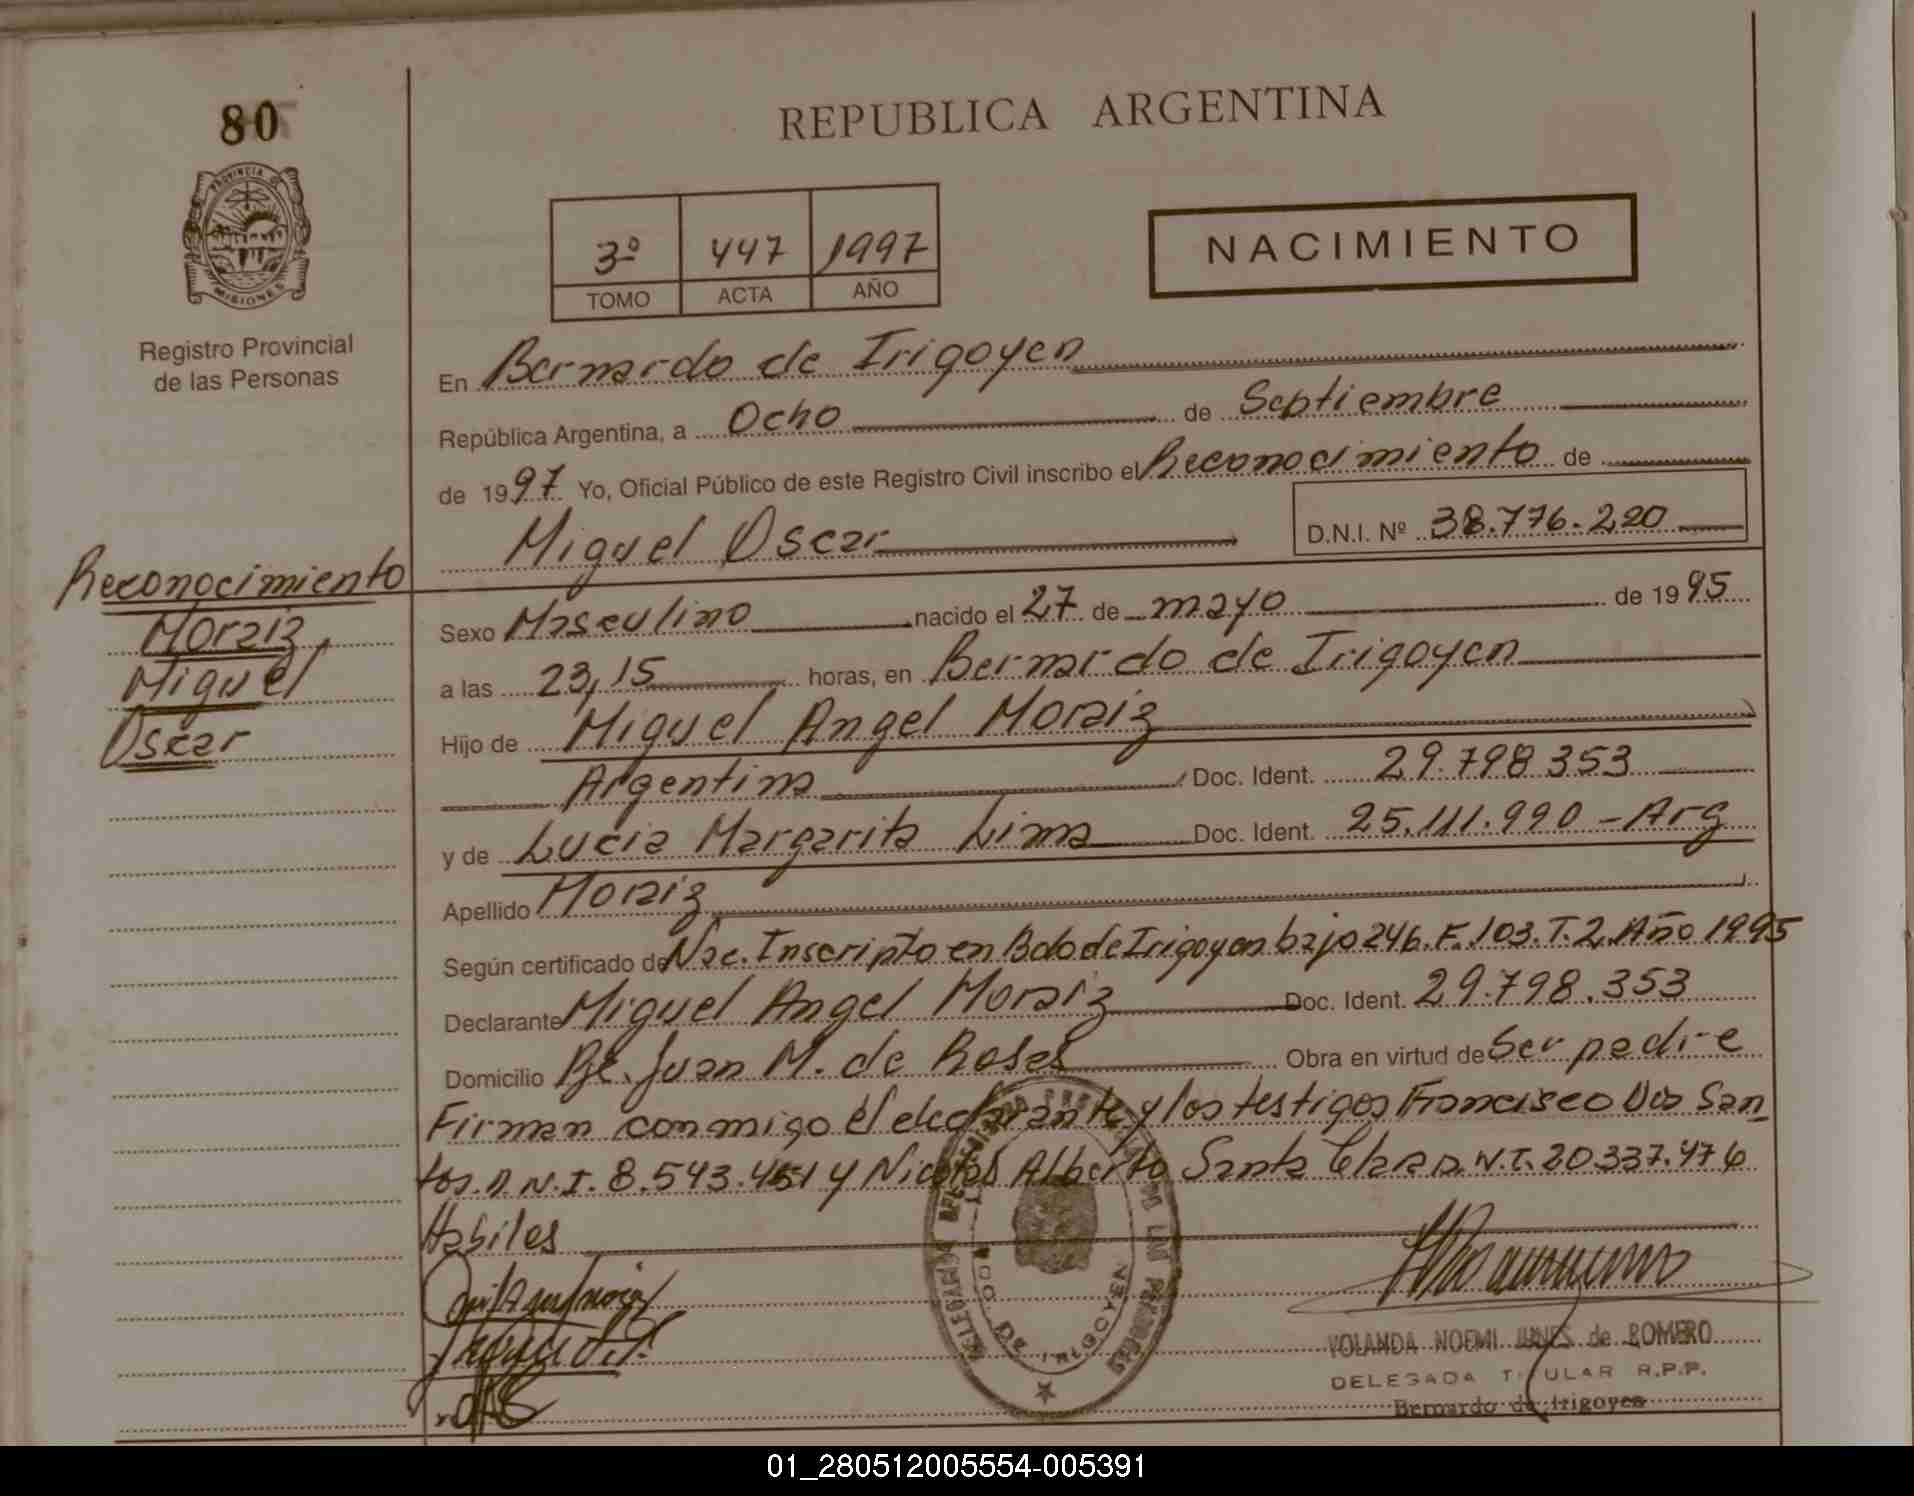 80
REPUBLICA ARGENTINA
PROVINCIA DE
MISIONES
Registro Provincial
de las Personas
3º 447 1997
TOMO ACTA AÑO
NACIMIENTO
En Bernardo de Irigoyen
República Argentina, a Ocho de Septiembre
de 1997 Yo, Oficial Público de este Registro Civil inscribo el Reconocimiento de
Miguel Oscar D.N.I. Nº 38.776.220
Reconocimiento
Moraiz
Miguel
Oscar
Sexo Masculino nacido el 27 de mayo de 1995
a las 23,15 horas, en Bernardo de Irigoyen
Hijo de Miguel Angel Moraiz
Argentina Doc. Ident. 29.798.353
y de Lucia Margarita Lima Doc. Ident. 25.111.990 - Arg
Apellido Moraiz
Según certificado de Nac. Inscripto en Bdo de Irigoyen bajo 246. F. 103. T. 2. Año 1995
Declarante Miguel Angel Moraiz Doc. Ident. 29.798.353
Domicilio Bº. Juan M. de Rosas Obra en virtud de Ser padre
Firman conmigo el declarante y los testigos Francisco Dos San
tos. D.N.I. 8.543.451 y Nicolas Alberto Santa Clara D.N.I. 20.337.476
Habiles
BDO. DE IRIGOYEN
YOLANDA NOEMI JUNES de ROMERO
DELEGADA TITULAR R.P.P.
Bernardo de Irigoyen
01_280512005554-005391